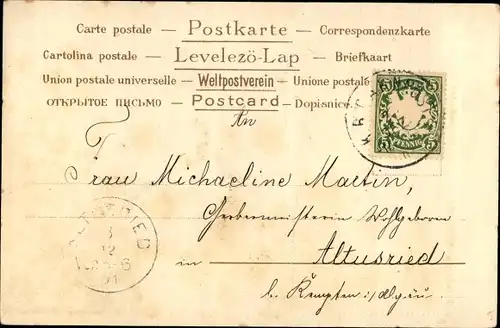 Carte postale – Postkarte – Correspondenzkarte
Cartolina postale – Levelezö-Lap – Briefkaart
Union postale universelle – Weltpostverein – Unione postale
ОТКРЫТОЕ ПИСЬМО – Postcard – Dopisnice
An
Frau Michaeline Martin,
Gerbermeisterin Wohlgeboren
in Altusried
b. Kempten i/Algäu
5 5
PFENNIG
ALTUSRIED